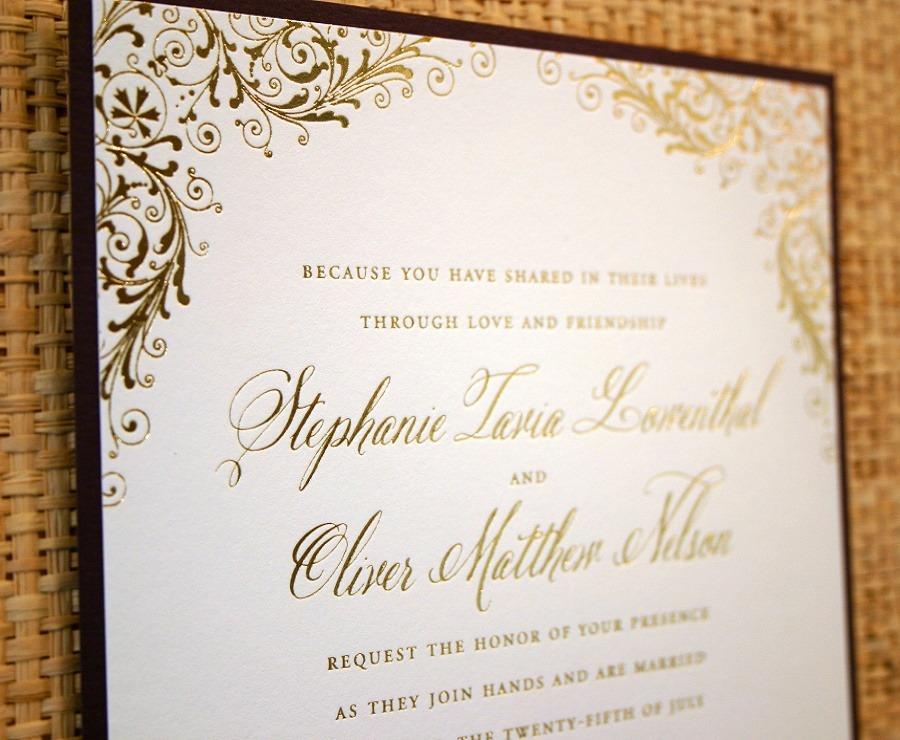 BECAUSE YOU HAVE SHARED IN THEIR LIVES
THROUGH LOVE AND FRIENDSHIP
Stephanie Tavia Lowenthal
AND
Oliver Matthew Nelson
REQUEST THE HONOR OF YOUR PRESENCE
AS THEY JOIN HANDS AND ARE MARRIED
THE TWENTY-FIFTH OF JULY